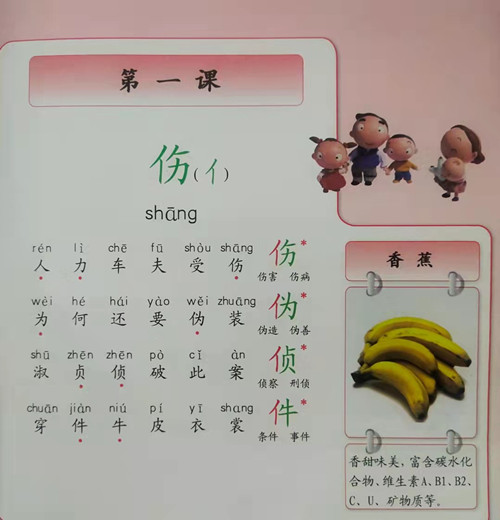 第一课
伤(亻)
shāng
rén lì chē fū shòu shāng
人力车夫受伤 伤*
伤害 伤病
wèi hé hái yào wěi zhuāng
为何还要伪装 伪*
伪造 伪善
shū zhēn zhēn pò cǐ àn
淑贞侦破此案 侦*
侦察 刑侦
chuān jiàn niú pí yī shang
穿件牛皮衣裳 件*
条件 事件
香蕉
香甜味美,富含碳水化
合物、维生素A、B1、B2、
C、U、矿物质等。